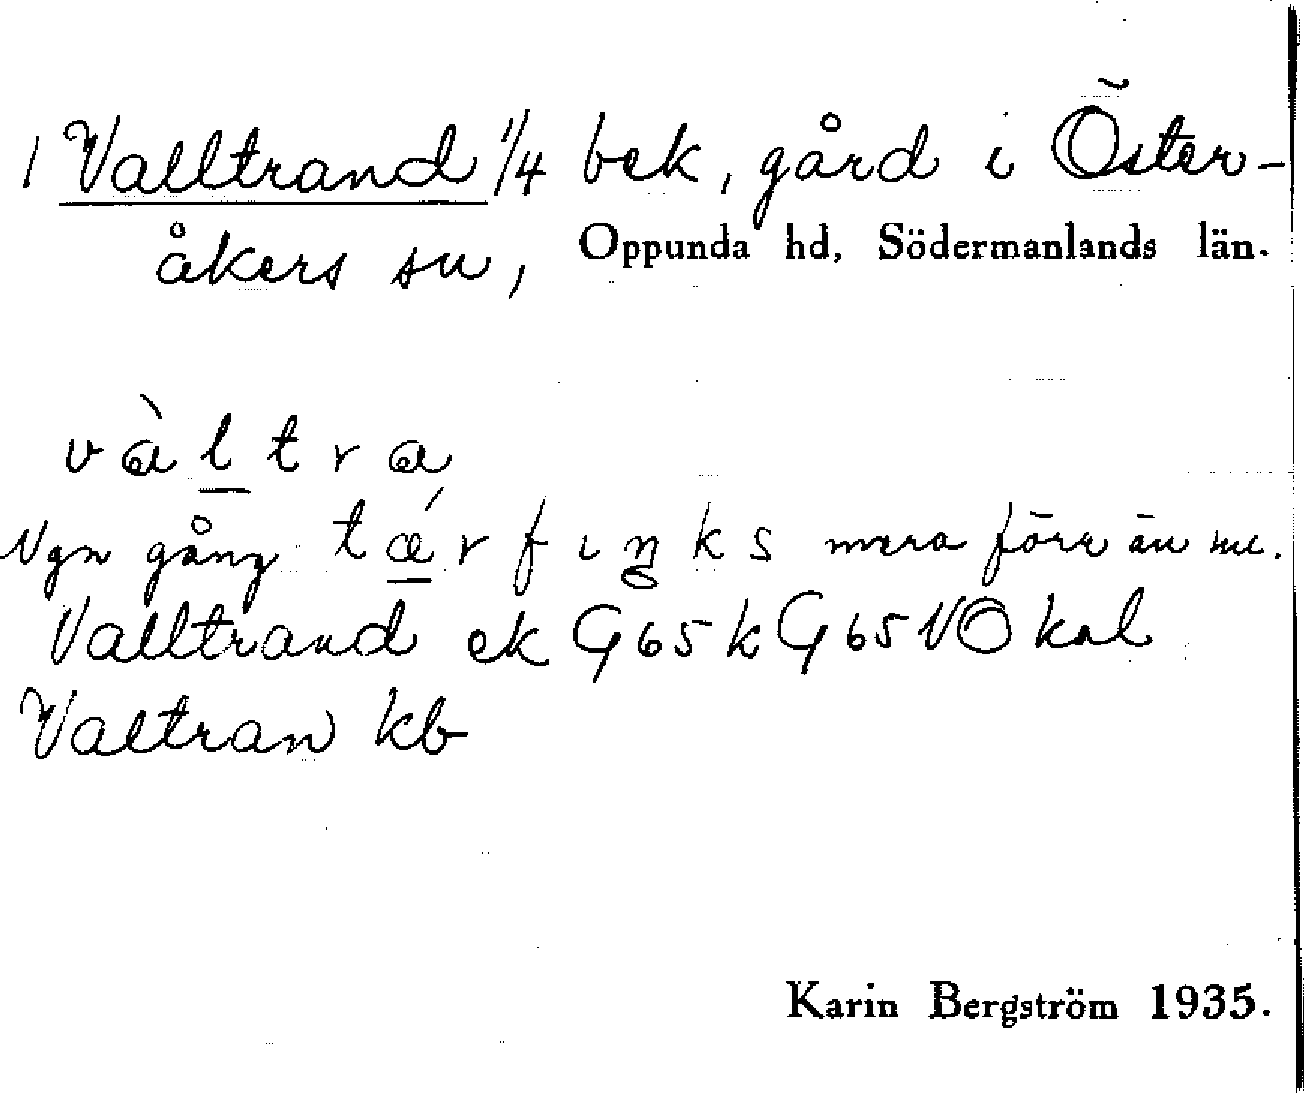 1 Valltrand 1/4 bek, gård i Öster-
åkers sn, Oppunda hd, Södermanlands län.
v à l t r a
Ngn gång t ǽ r f ɩ ŋ k s mera förr än nu.
Valltrand ek G65 k G65 NO kal
Valtran kb
Karin Bergström 1935.